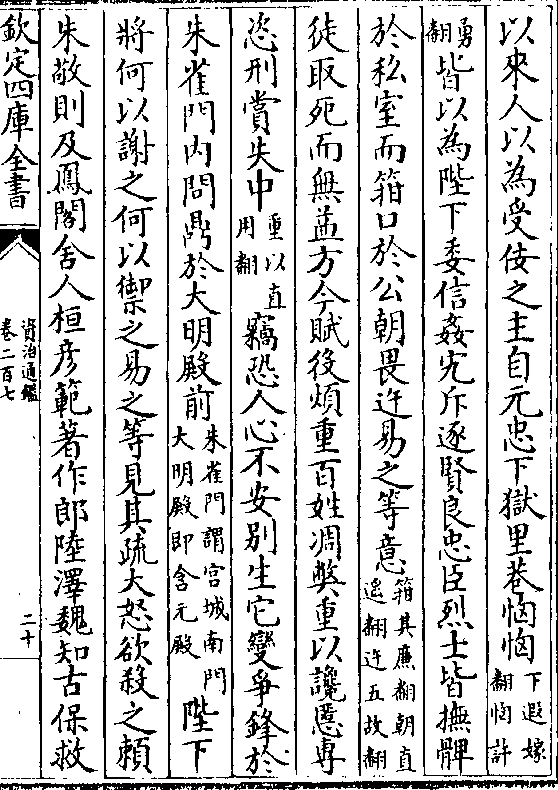 以來人以為受佞之主自元忠下獄里巷恟恟下遐嫁翻恟許
勇翻皆以為陛下委信姦宄斥逐賢良忠臣烈士皆撫髀
於私室而箝口於公朝畏迕易之等意箝其廉翻朝直遥翻迕五故翻
徒取死而無益方今賦役煩重百姓凋弊重以讒慝専
恣刑賞失中重以直用翻竊恐人心不安别生它變爭鋒於
朱雀門内問鼎於大明殿前朱雀門謂宫城南門大明殿即含元殿陛下
將何以謝之何以禦之易之等見其疏大怒欲殺之頼
朱敬則及鳳閣舍人桓彦範著作郎陸澤魏知古保救
欽定四庫全書
資治通鑑
卷二百七
二十